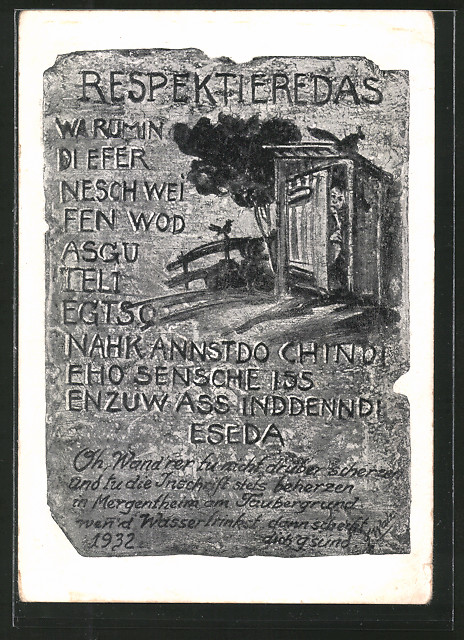 RESPEKTIEREDAS
WARUMIN
DIEFER
NESCHWEI
FEN WOD
ASGU
TELI
EGTSO
NAHKANNSTDO CHINDI
EHO SENSCHE ISS
ENZUWASS INDDENNDI
ESEDA
Oh, Wand'rer tu nicht drüber scherzen
und tu die Inschrift stets beherzen
in Mergentheim am Taubergrund
wen'd Wasser trinkst dann scheißt
dich g'sund
1932